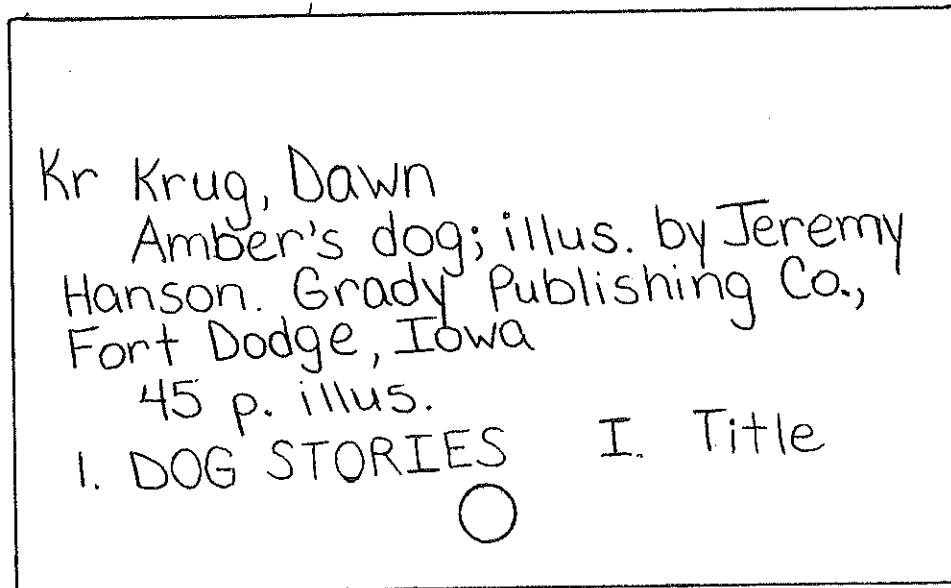 Kr Krug, Dawn
Amber's dog; illus. by Jeremy
Hanson. Grady Publishing Co.,
Fort Dodge, Iowa
45 p. illus.
1. DOG STORIES I. Title